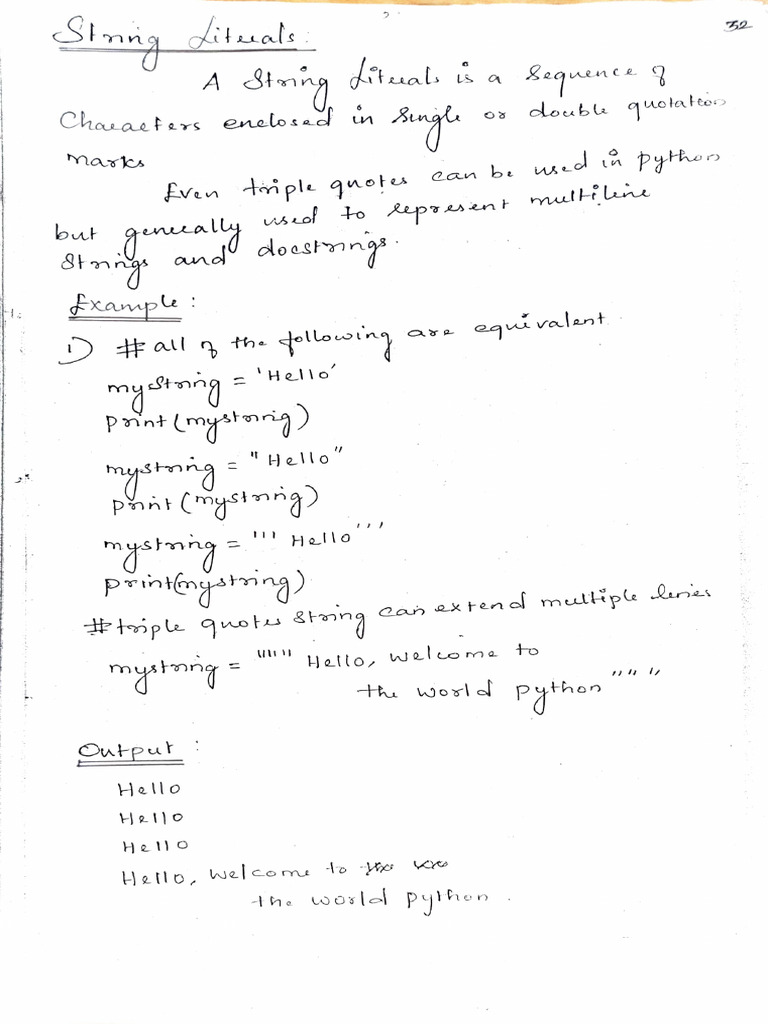 32
String Literals:
A String Literals is a Sequence of
Characters enclosed in single or double quotation
marks
Even triple quotes can be used in python
but generally used to represent multiline
strings and docstrings.
Example:
1) # all of the following are equivalent.
mystring = 'Hello'
print(mystring)
mystring = "Hello"
print(mystring)
mystring = ''' Hello '''
print(mystring)
# triple quotes string can extend multiple lines
mystring = """ Hello, welcome to
the world python """
Output:
Hello
Hello
Hello
Hello, Welcome to
the world python.